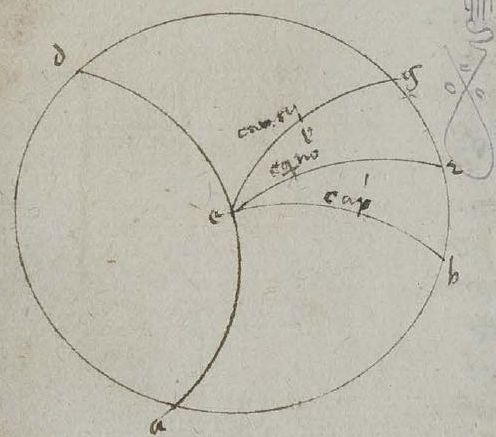 d
g
cancri
p
equo
z
e
cap
b
a